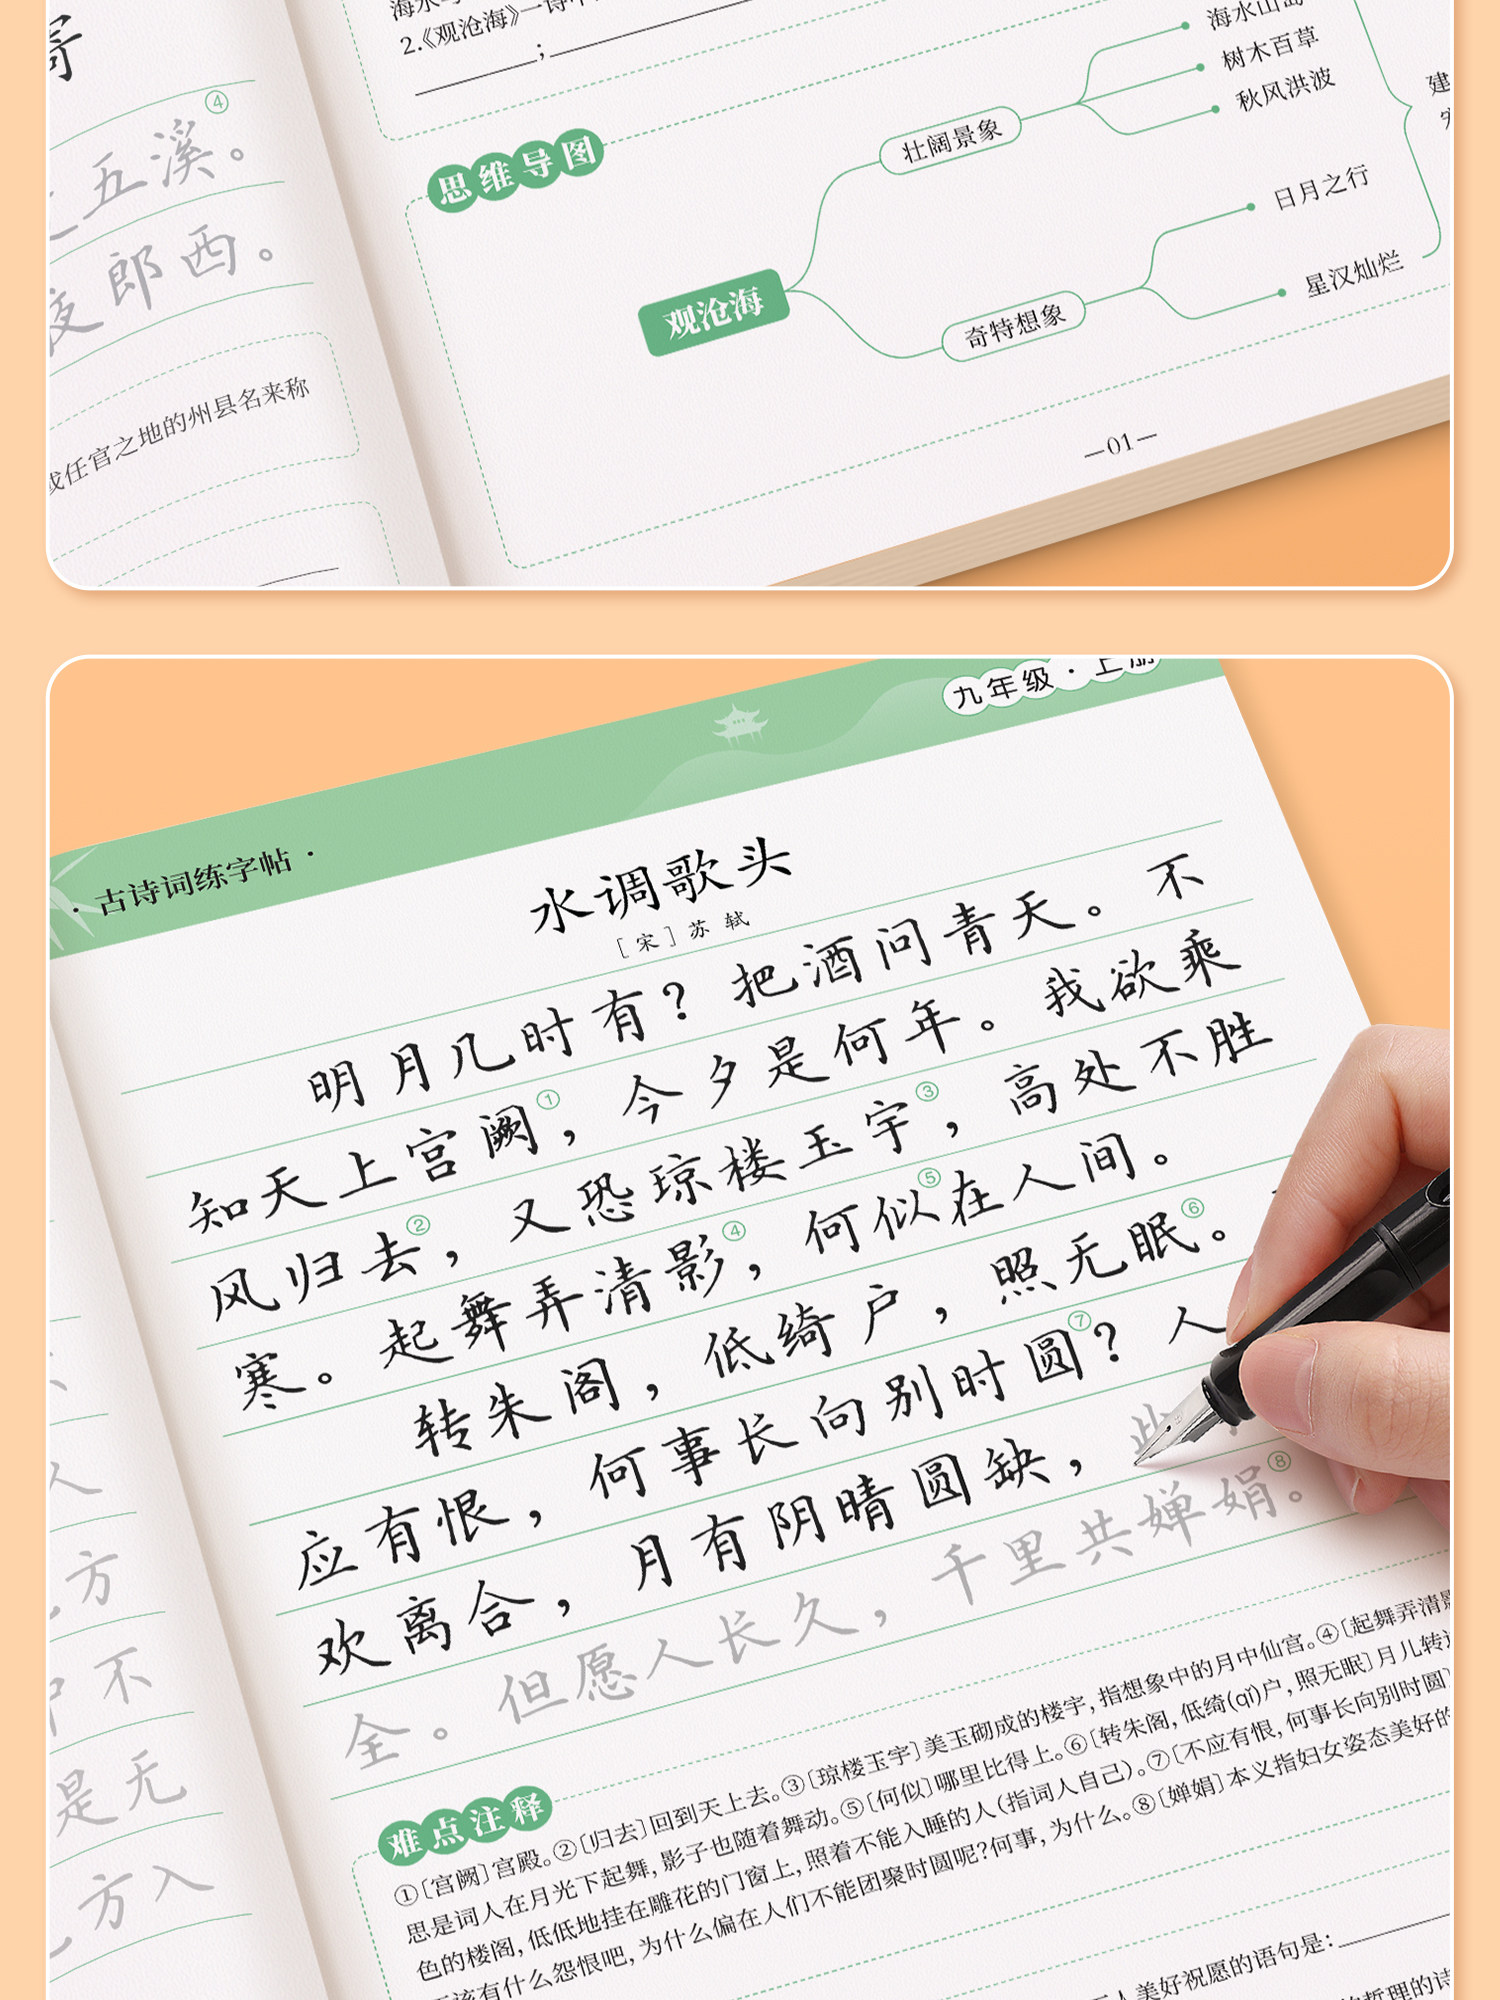 海水
2.《观沧海》一诗中
;
④
五溪。
夜郎西。
或任官之地的州县名来称
思维导图
观沧海
壮阔景象
海水山岛
树木百草
秋风洪波
奇特想象
日月之行
星汉灿烂
建
—01—
九年级·上册
·古诗词练字帖·
水调歌头
［宋］苏轼
明月几时有？把酒问青天。不
知天上宫阙①，今夕是何年。我欲乘
风归去②，又恐琼楼玉宇③，高处不胜
寒。起舞弄清影④，何似⑤在人间。
转朱阁，低绮户，照无眠⑥。
应有恨，何事长向别时圆⑦？人
欢离合，月有阴晴圆缺，此
全。但愿人长久，千里共婵娟⑧。
人
方
不
是无
方入
难点注释
①［宫阙］宫殿。②［归去］回到天上去。③［琼楼玉宇］美玉砌成的楼宇，指想象中的月中仙宫。④［起舞弄清影
思是词人在月光下起舞，影子也随着舞动。⑤［何似］哪里比得上。⑥［转朱阁，低绮(qǐ)户，照无眠］月儿转过
色的楼阁，低低地挂在雕花的门窗上，照着不能入睡的人(指词人自己)。⑦［不应有恨，何事长向别时圆］
该有什么怨恨吧，为什么偏在人们不能团聚时圆呢？何事，为什么。⑧［婵娟］本义指妇女姿态美好的
人美好祝愿的语句是：
哲理的诗